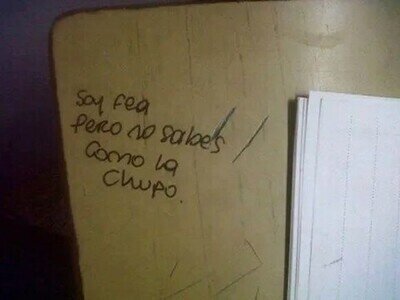 Soy fea
Pero no sabes
Como la
Chupo.